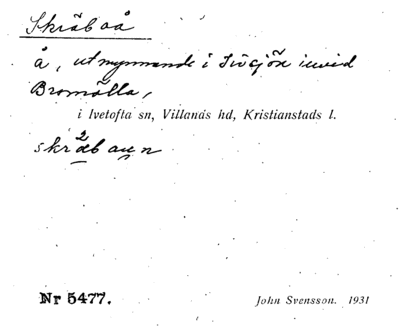 Skräboå
å, utmynnande i Ivösjön invid
Bromölla,
i Ivetofta sn, Villands hd, Kristianstads l.
Nr 5477.
John Svensson. 1931